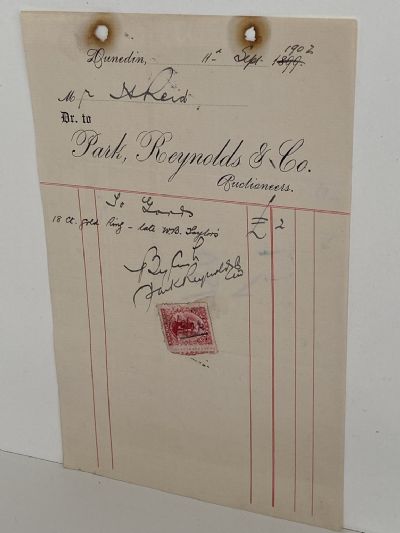 Dunedin, 11th Sept 1902 1899.
Mr H Reid.
Dr. to
Park, Reynolds & Co.
Auctioneers.
To Goods
18 Ct. gold Ring - late W.B. Taylor's £ 2
By Cash
Park Reynolds & Co